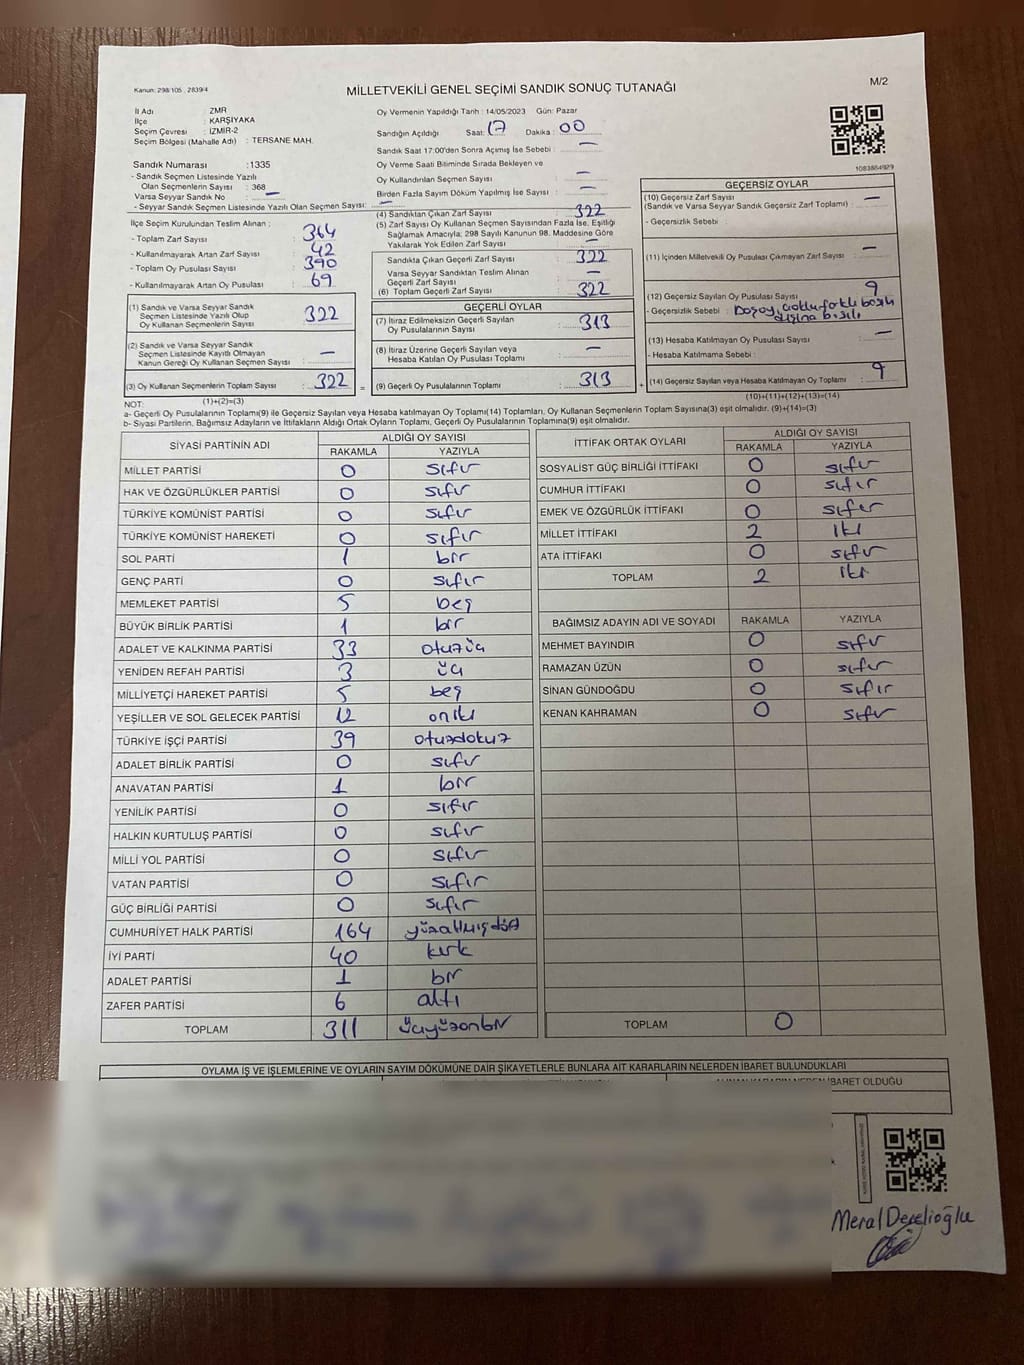 Kanun: 298/105 , 2839/4
MİLLETVEKİLİ GENEL SEÇİMİ SANDIK SONUÇ TUTANAĞI
M/2
İl Adı : ZMR
İlçe : KARŞIYAKA
Seçim Çevresi : İZMİR-2
Seçim Bölgesi (Mahalle Adı) : TERSANE MAH.
Sandık Numarası :1335
- Sandık Seçmen Listesinde Yazılı
Olan Seçmenlerin Sayısı : 368
Varsa Seyyar Sandık No : —
- Seyyar Sandık Seçmen Listesinde Yazılı Olan Seçmen Sayısı: —
Oy Vermenin Yapıldığı Tarih : 14/05/2023 Gün: Pazar
Sandığın Açıldığı Saat: 17 Dakika : 00
Sandık Saat 17:00'den Sonra Açımış İse Sebebi : —
Oy Verme Saati Bitiminde Sırada Bekleyen ve
Oy Kullandırılan Seçmen Sayısı : —
Birden Fazla Sayım Döküm Yapılmış İse Sayısı : —
1083884929
İlçe Seçim Kurulundan Teslim Alınan ;
- Toplam Zarf Sayısı : 364
- Kullanılmayarak Artan Zarf Sayısı : 42
- Toplam Oy Pusulası Sayısı : 390
- Kullanılmayarak Artan Oy Pusulası : 69
(1) Sandık ve Varsa Seyyar Sandık
Seçmen Listesinde Yazılı Olup
Oy Kullanan Seçmenlerin Sayısı : 322
(2) Sandık ve Varsa Seyyar Sandık
Seçmen Listesinde Kayıtlı Olmayan
Kanun Gereği Oy Kullanan Seçmen Sayısı : —
(3) Oy Kullanan Seçmenlerin Toplam Sayısı : 322 =
(1)+(2)=(3)
(4) Sandıktan Çıkan Zarf Sayısı : 322
(5) Zarf Sayısı Oy Kullanan Seçmen Sayısından Fazla İse, Eşitliği
Sağlamak Amacıyla; 298 Sayılı Kanunun 98. Maddesine Göre
Yakılarak Yok Edilen Zarf Sayısı : —
Sandıkta Çıkan Geçerli Zarf Sayısı : 322
Varsa Seyyar Sandıktan Teslim Alınan
Geçerli Zarf Sayısı : —
(6) Toplam Geçerli Zarf Sayısı : 322
GEÇERLİ OYLAR
(7) İtiraz Edilmeksizin Geçerli Sayılan
Oy Pusulalarının Sayısı : 313
(8) İtiraz Üzerine Geçerli Sayılan veya
Hesaba Katılan Oy Pusulası Toplamı : —
(9) Geçerli Oy Pusulalarının Toplamı : 313 +
GEÇERSİZ OYLAR
(10) Geçersiz Zarf Sayısı
(Sandık ve Varsa Seyyar Sandık Geçersiz Zarf Toplamı) : —
- Geçersizlik Sebebi :
(11) İçinden Milletvekili Oy Pusulası Çıkmayan Zarf Sayısı : —
(12) Geçersiz Sayılan Oy Pusulası Sayısı : 9
- Geçersizlik Sebebi : farklı basılı
dışına basılı
(13) Hesaba Katılmayan Oy Pusulası Sayısı : —
- Hesaba Katılmama Sebebi :
(14) Geçersiz Sayılan veya Hesaba Katılmayan Oy Toplamı : 9
(10)+(11)+(12)+(13)=(14)
NOT:
a- Geçerli Oy Pusulalarının Toplamı(9) ile Geçersiz Sayılan veya Hesaba katılmayan Oy Toplamı(14) Toplamları, Oy Kullanan Seçmenlerin Toplam Sayısına(3) eşit olmalıdır. (9)+(14)=(3)
b- Siyasi Partilerin, Bağımsız Adayların ve İttifakların Aldığı Ortak Oyların Toplamı, Geçerli Oy Pusulalarının Toplamına(9) eşit olmalıdır.
SİYASİ PARTİNİN ADI ALDIĞI OY SAYISI
RAKAMLA YAZIYLA
MİLLET PARTİSİ 0 sıfır
HAK VE ÖZGÜRLÜKLER PARTİSİ 0 sıfır
TÜRKİYE KOMÜNİST PARTİSİ 0 sıfır
TÜRKİYE KOMÜNİST HAREKETİ 0 sıfır
SOL PARTİ 1 bir
GENÇ PARTİ 0 sıfır
MEMLEKET PARTİSİ 5 beş
BÜYÜK BİRLİK PARTİSİ 1 bir
ADALET VE KALKINMA PARTİSİ 33 otuzüç
YENİDEN REFAH PARTİSİ 3 üç
MİLLİYETÇİ HAREKET PARTİSİ 5 beş
YEŞİLLER VE SOL GELECEK PARTİSİ 12 oniki
TÜRKİYE İŞÇİ PARTİSİ 39 otuzdokuz
ADALET BİRLİK PARTİSİ 0 sıfır
ANAVATAN PARTİSİ 1 bir
YENİLİK PARTİSİ 0 sıfır
HALKIN KURTULUŞ PARTİSİ 0 sıfır
MİLLİ YOL PARTİSİ 0 sıfır
VATAN PARTİSİ 0 sıfır
GÜÇ BİRLİĞİ PARTİSİ 0 sıfır
CUMHURİYET HALK PARTİSİ 164 yüzaltmışdört
İYİ PARTİ 40 kırk
ADALET PARTİSİ 1 bir
ZAFER PARTİSİ 6 altı
TOPLAM 311 üçyüzonbir
İTTİFAK ORTAK OYLARI ALDIĞI OY SAYISI
RAKAMLA YAZIYLA
SOSYALİST GÜÇ BİRLİĞİ İTTİFAKI 0 sıfır
CUMHUR İTTİFAKI 0 sıfır
EMEK VE ÖZGÜRLÜK İTTİFAKI 0 sıfır
MİLLET İTTİFAKI 2 iki
ATA İTTİFAKI 0 sıfır
TOPLAM 2 iki
BAĞIMSIZ ADAYIN ADI VE SOYADI RAKAMLA YAZIYLA
MEHMET BAYINDIR 0 sıfır
RAMAZAN ÜZÜN 0 sıfır
SİNAN GÜNDOĞDU 0 sıfır
KENAN KAHRAMAN 0 sıfır
TOPLAM 0
OYLAMA İŞ VE İŞLEMLERİNE VE OYLARIN SAYIM DÖKÜMÜNE DAİR ŞİKAYETLERLE BUNLARA AİT KARARLARIN NELERDEN İBARET BULUNDUKLARI
İBARET OLDUĞU
Meral Derelioğlu